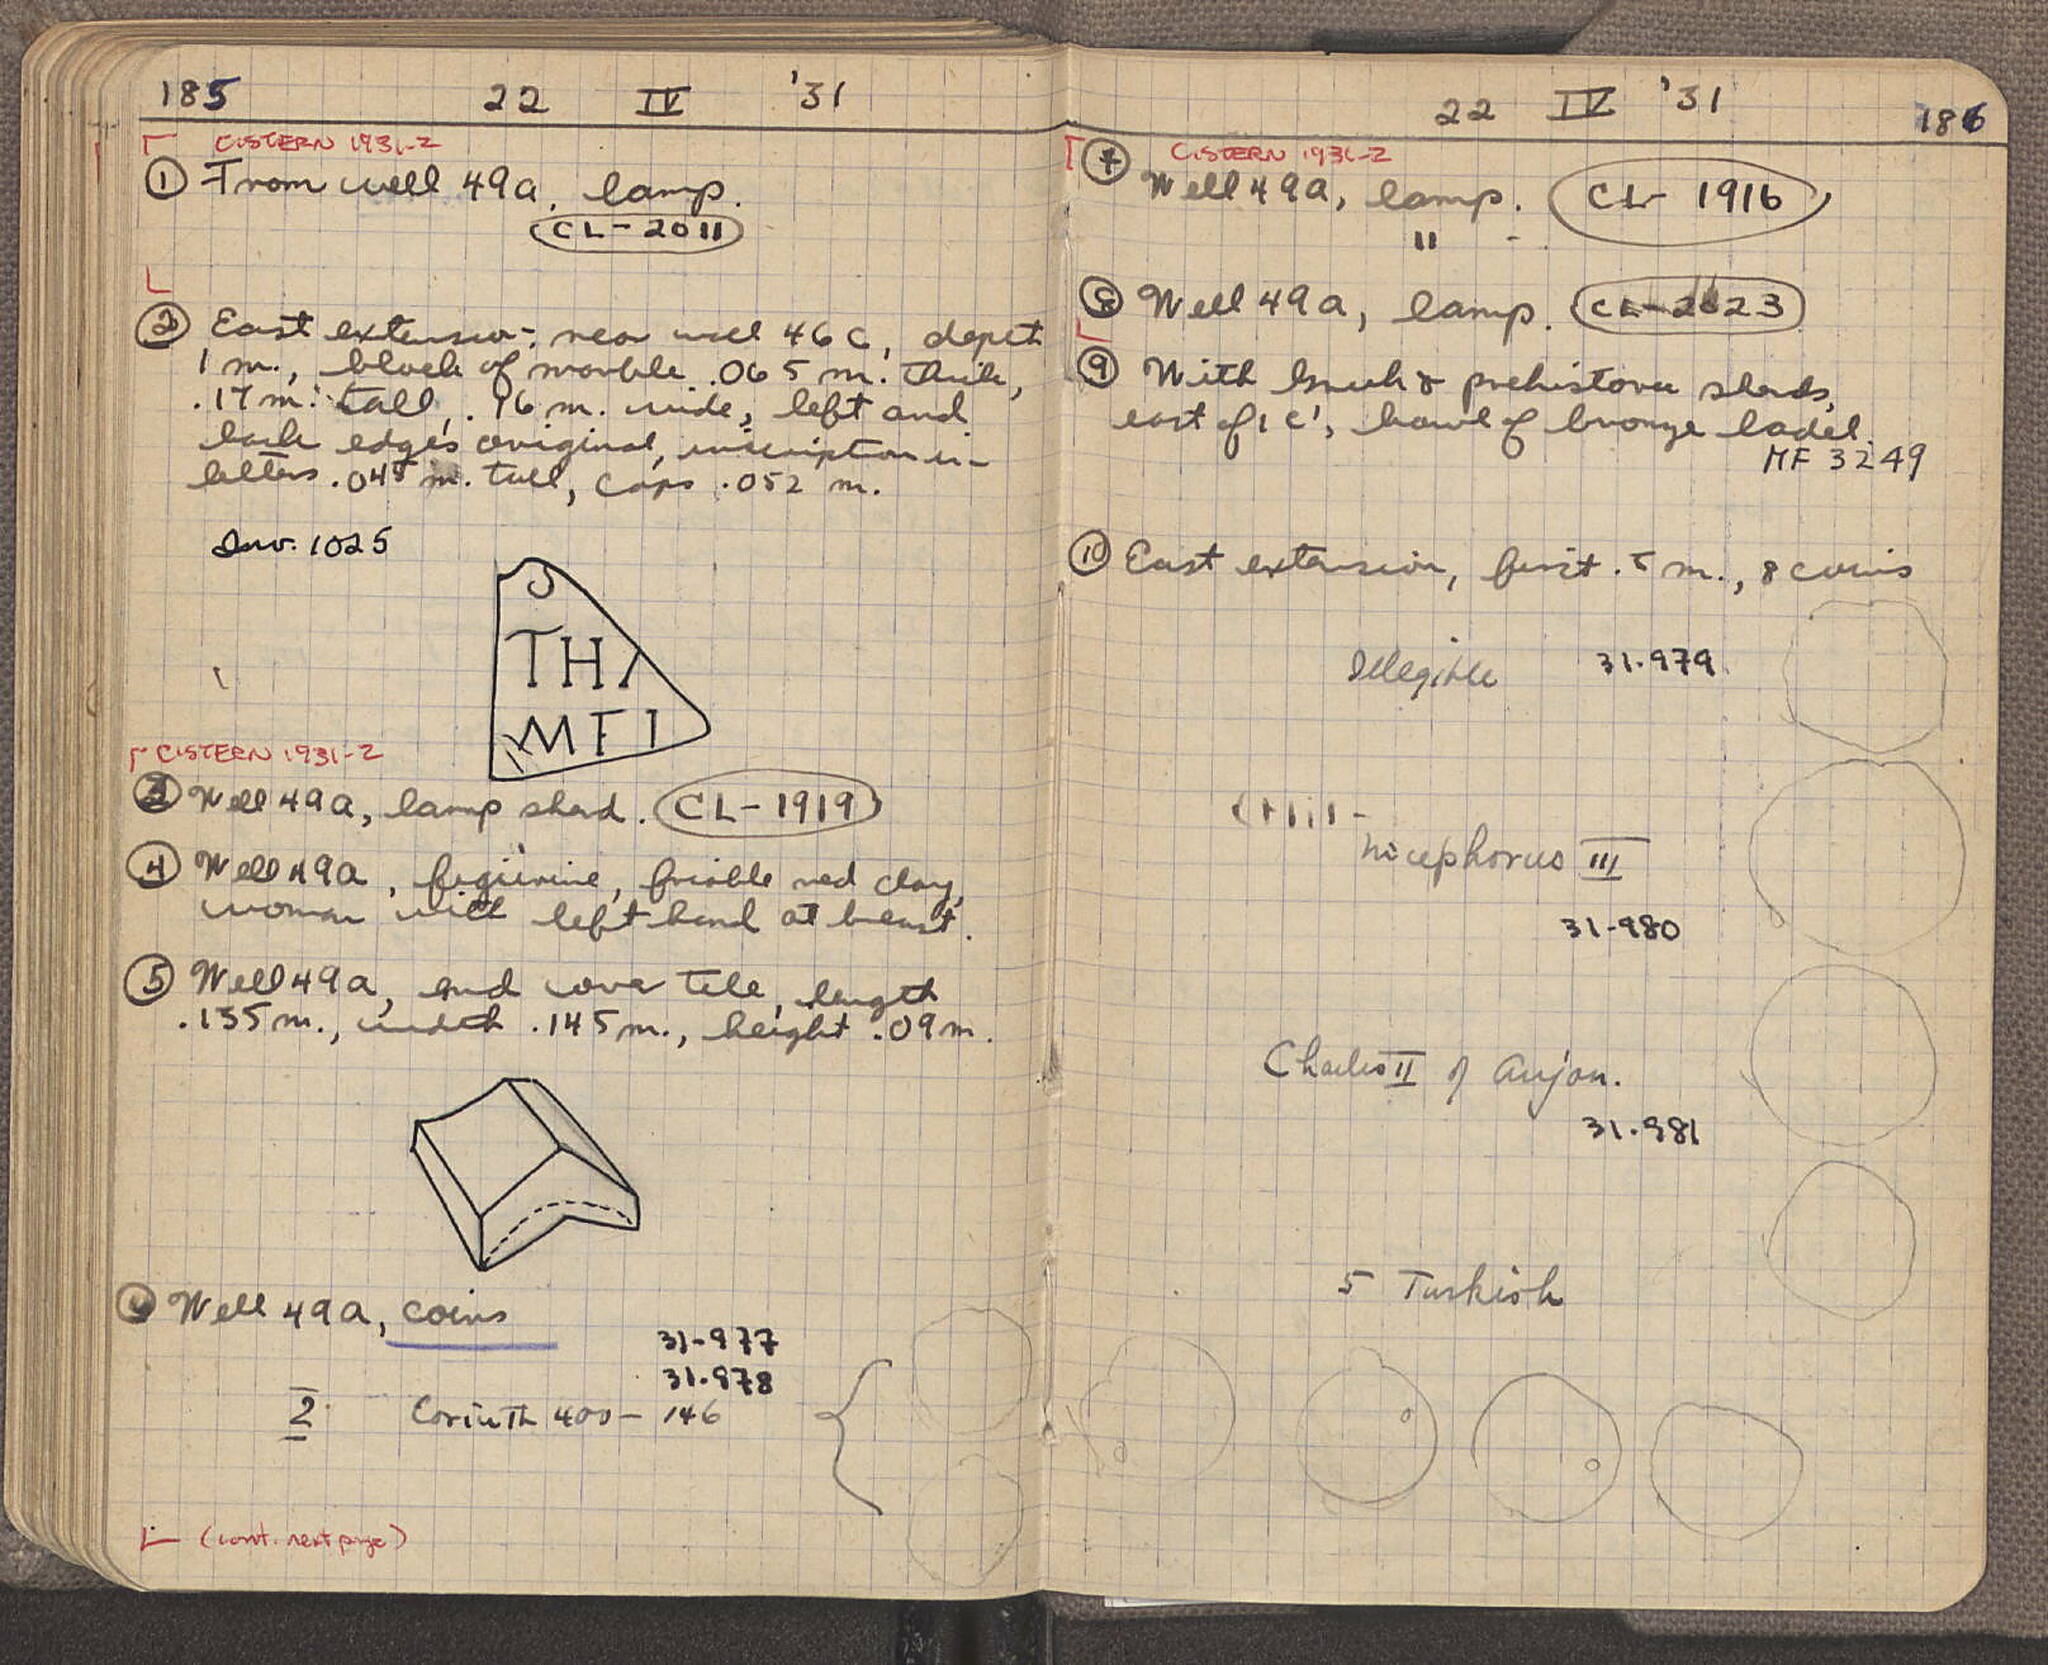 185 22 IV '31
CISTERN 1931-2
① From well 49a, lamp.
CL-2011
② East extension, near well 46 C, depth
1 m., block of marble .065 m. thick,
.17 m. tall, .16 m. wide, left and
back edges original, inscription in
letters .045 m. tall, caps .052 m.
Inv. 1025
THI
MFI
CISTERN 1931-2
③ Well 49a, lamp shard. CL-1919
④ Well 49a, figurine, friable red clay,
woman with left hand at breast.
⑤ Well 49a, end cover tile, length
.155 m., width .145 m., height .09 m.
⑥ Well 49a, coins
31-977
31-978
2 Corinth 400-146
(cont. next page)
22 IV '31 186
CISTERN 1931-2
⑦ Well 49a, lamp. CL-1916
"
⑧ Well 49a, lamp. CL-2023
⑨ With Greek & prehistoric shards,
east of 1 C', bowl of bronze ladel.
MF 3249
⑩ East extension, first .5 m., 8 coins
Illegible 31-979
Nicephorus III
31-980
Charles II of Anjou.
31-981
5 Turkish